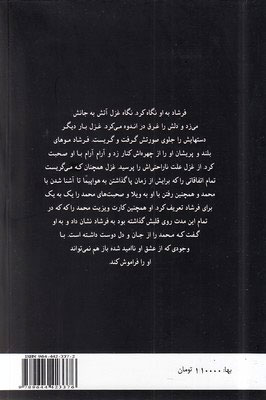 فرشاد به او نگاه کرد. نگاه غزل آتش به جانش
می‌زد و دلش را غرق در اندوه می‌کرد. غزل بار دیگر
دستهایش را جلوی صورتش گرفت و گریست. فرشاد موهای
بلند و پریشان او را از چهره‌اش کنار زد و آرام آرام با او صحبت
کرد تا از غزل علت ناراحتی‌اش را پرسید. غزل همچنان که می‌گریست
تمام اتفاقاتی را که برایش از زمان پا گذاشتن به هواپیما تا آشنا شدن با
محمد و همچنین رفتن با او به ویلا و صحبت‌های محمد را یک به یک
برای فرشاد تعریف کرد. او همچنین کارت ویزیت محمد را که که در
تمام این مدت روی قلبش گذاشته بود به فرشاد نشان داد و به او
گفت که محمد را از جان و دل دوست داشته است. با
وجودی که از عشق او ناامید شده باز هم نمی‌تواند
او را فراموش کند.
ISBN: 964-442-337-2
9789644423376
بها: ۱۱۰۰۰۰ تومان